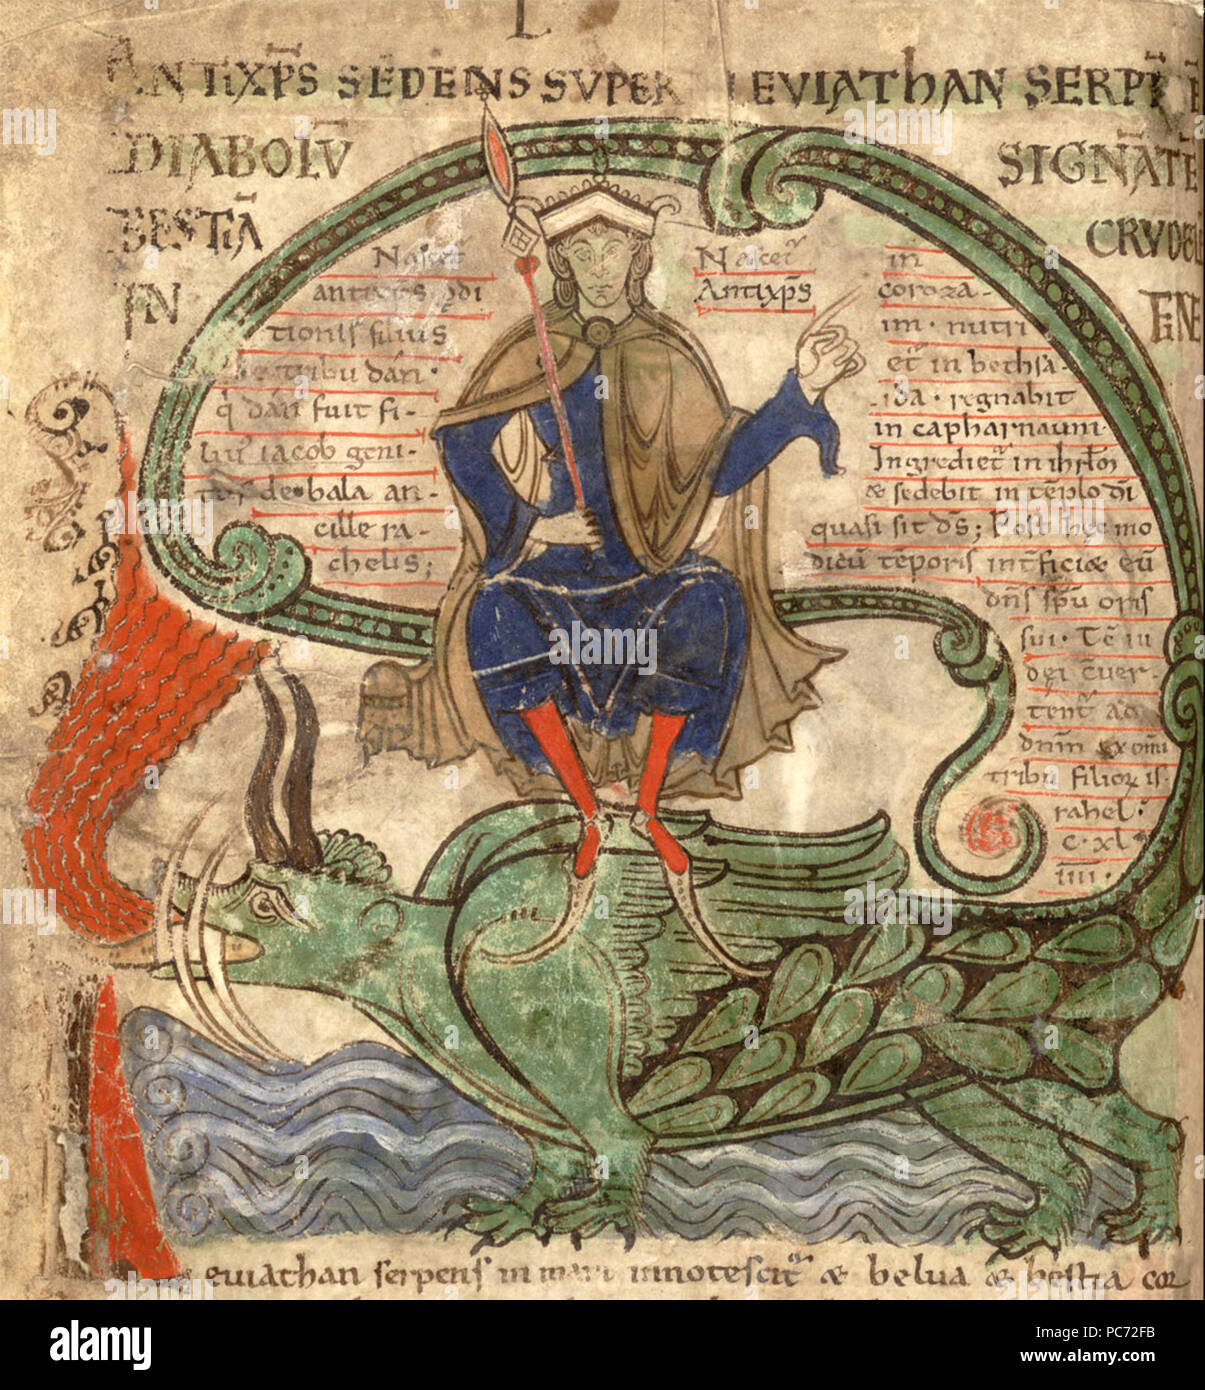 L
ANTIXP̄S SEDENS SUPER LEVIATHAN SERPĒ
DIABOLŪ SIGNĀTĒ
BESTIĀ CRUDEL
IN FINE
Nascet᷑
antixp̄s p̱di
tionis filius
de tribu dan·
q̇ dan fuit fi-
liu᷒ iacob geni-
tu᷒ de bala an-
cille ra-
chelis;
Nascet᷑
Antixp̄s
in
coroza-
im· nutri
et᷑ in bethsa-
ida· regnabit
in capharnaum·
Ingrediet᷑ in ihrl̄m
& sedebit in tēplo dī
quasi sit dс̄; Post hec mo
dicū tēporis int̄ficiæ eū
dn̄s sp̄u oris
sui· Tc̄ iu
dei c̄uer-
tent᷑ ad
dnm̄ ex omi
tribu filioꝝ is-
rahel·
c·xl
iiii·
euiathan serpens in mari innotescit᷑ & belua & bestia cor
alamy
Image ID: PC72FB
www.alamy.com